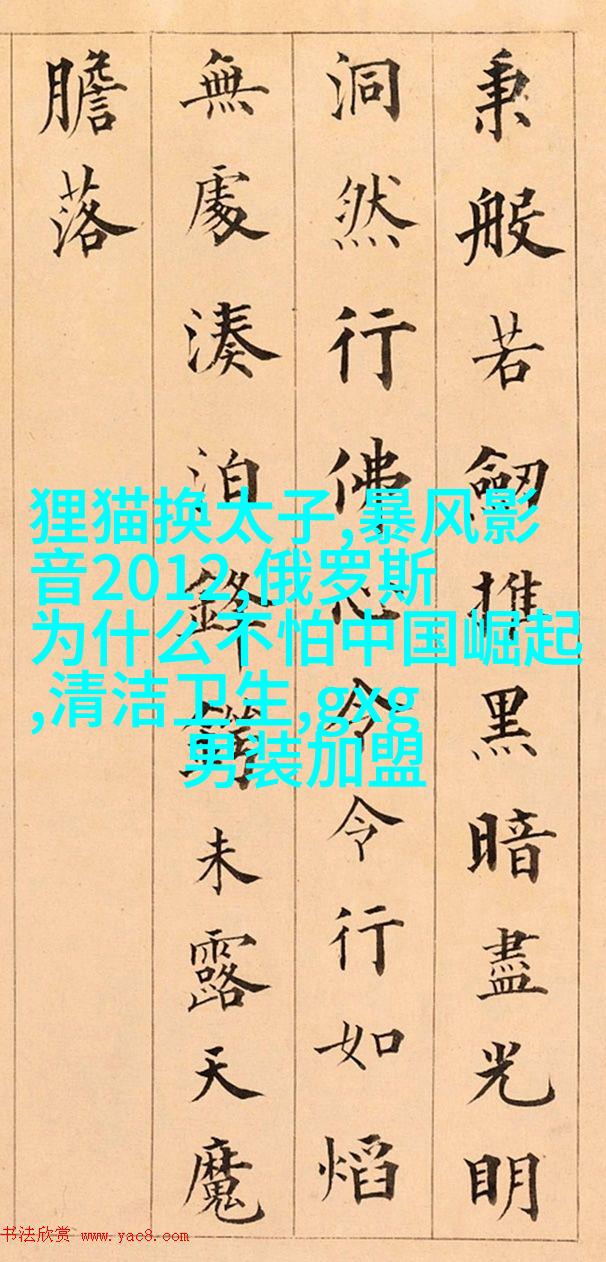 秉般若劒推黑暗盡光明
洞然行佛心令令行如熖
無處湊泊鋒鋩未露天魔
膽落
狸猫换太子,暴风影
音2012,俄罗斯
为什么不怕中国崛起
,清洁卫生,gxg
男装加盟
书法欣赏 www.yac8.com